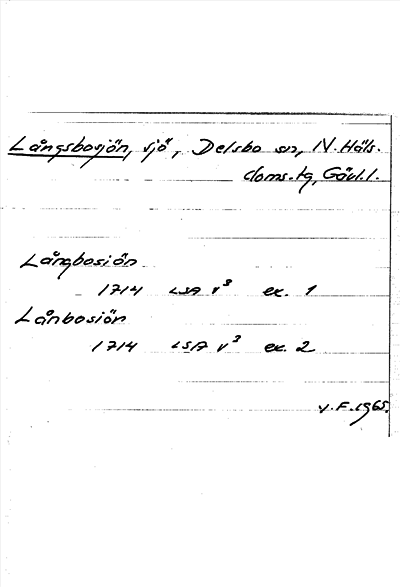 Långsbosjön, sjö, Delsbo sn, N. Häls.
doms.tg, Gävl.l.
Långbosiön
1714 LSA V³ ex. 1
Lånbosiön
1714 LSA V³ ex. 2
V.F. 1965.